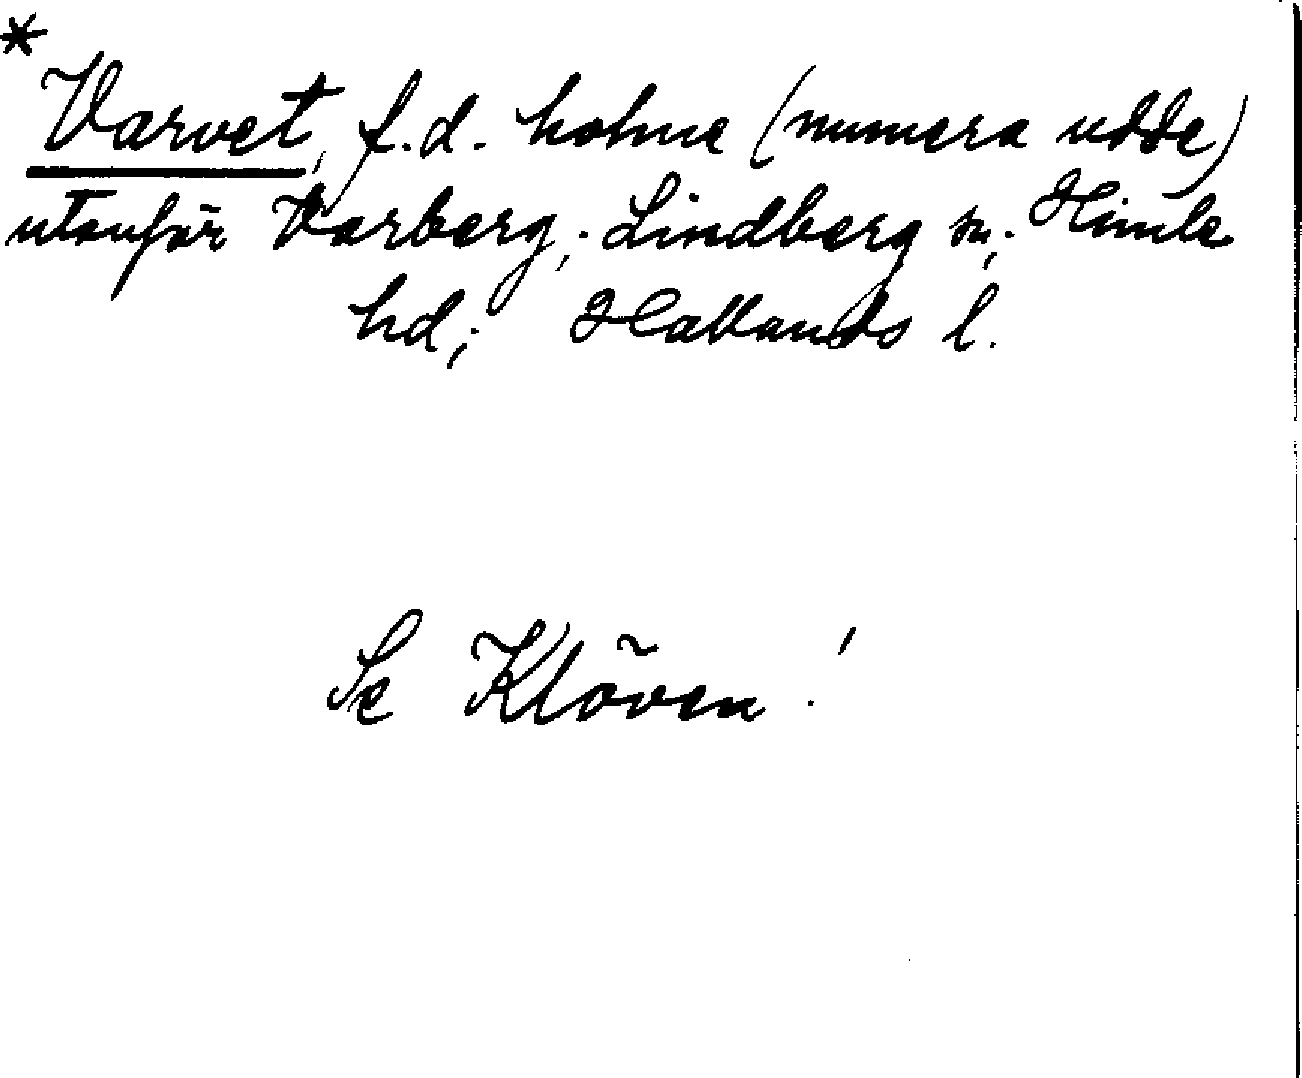 *
Varvet, f.d. holme (numera udde)
utanför Varberg; Lindberg sn; Himle
hd; Hallands l.
Se Klöven!